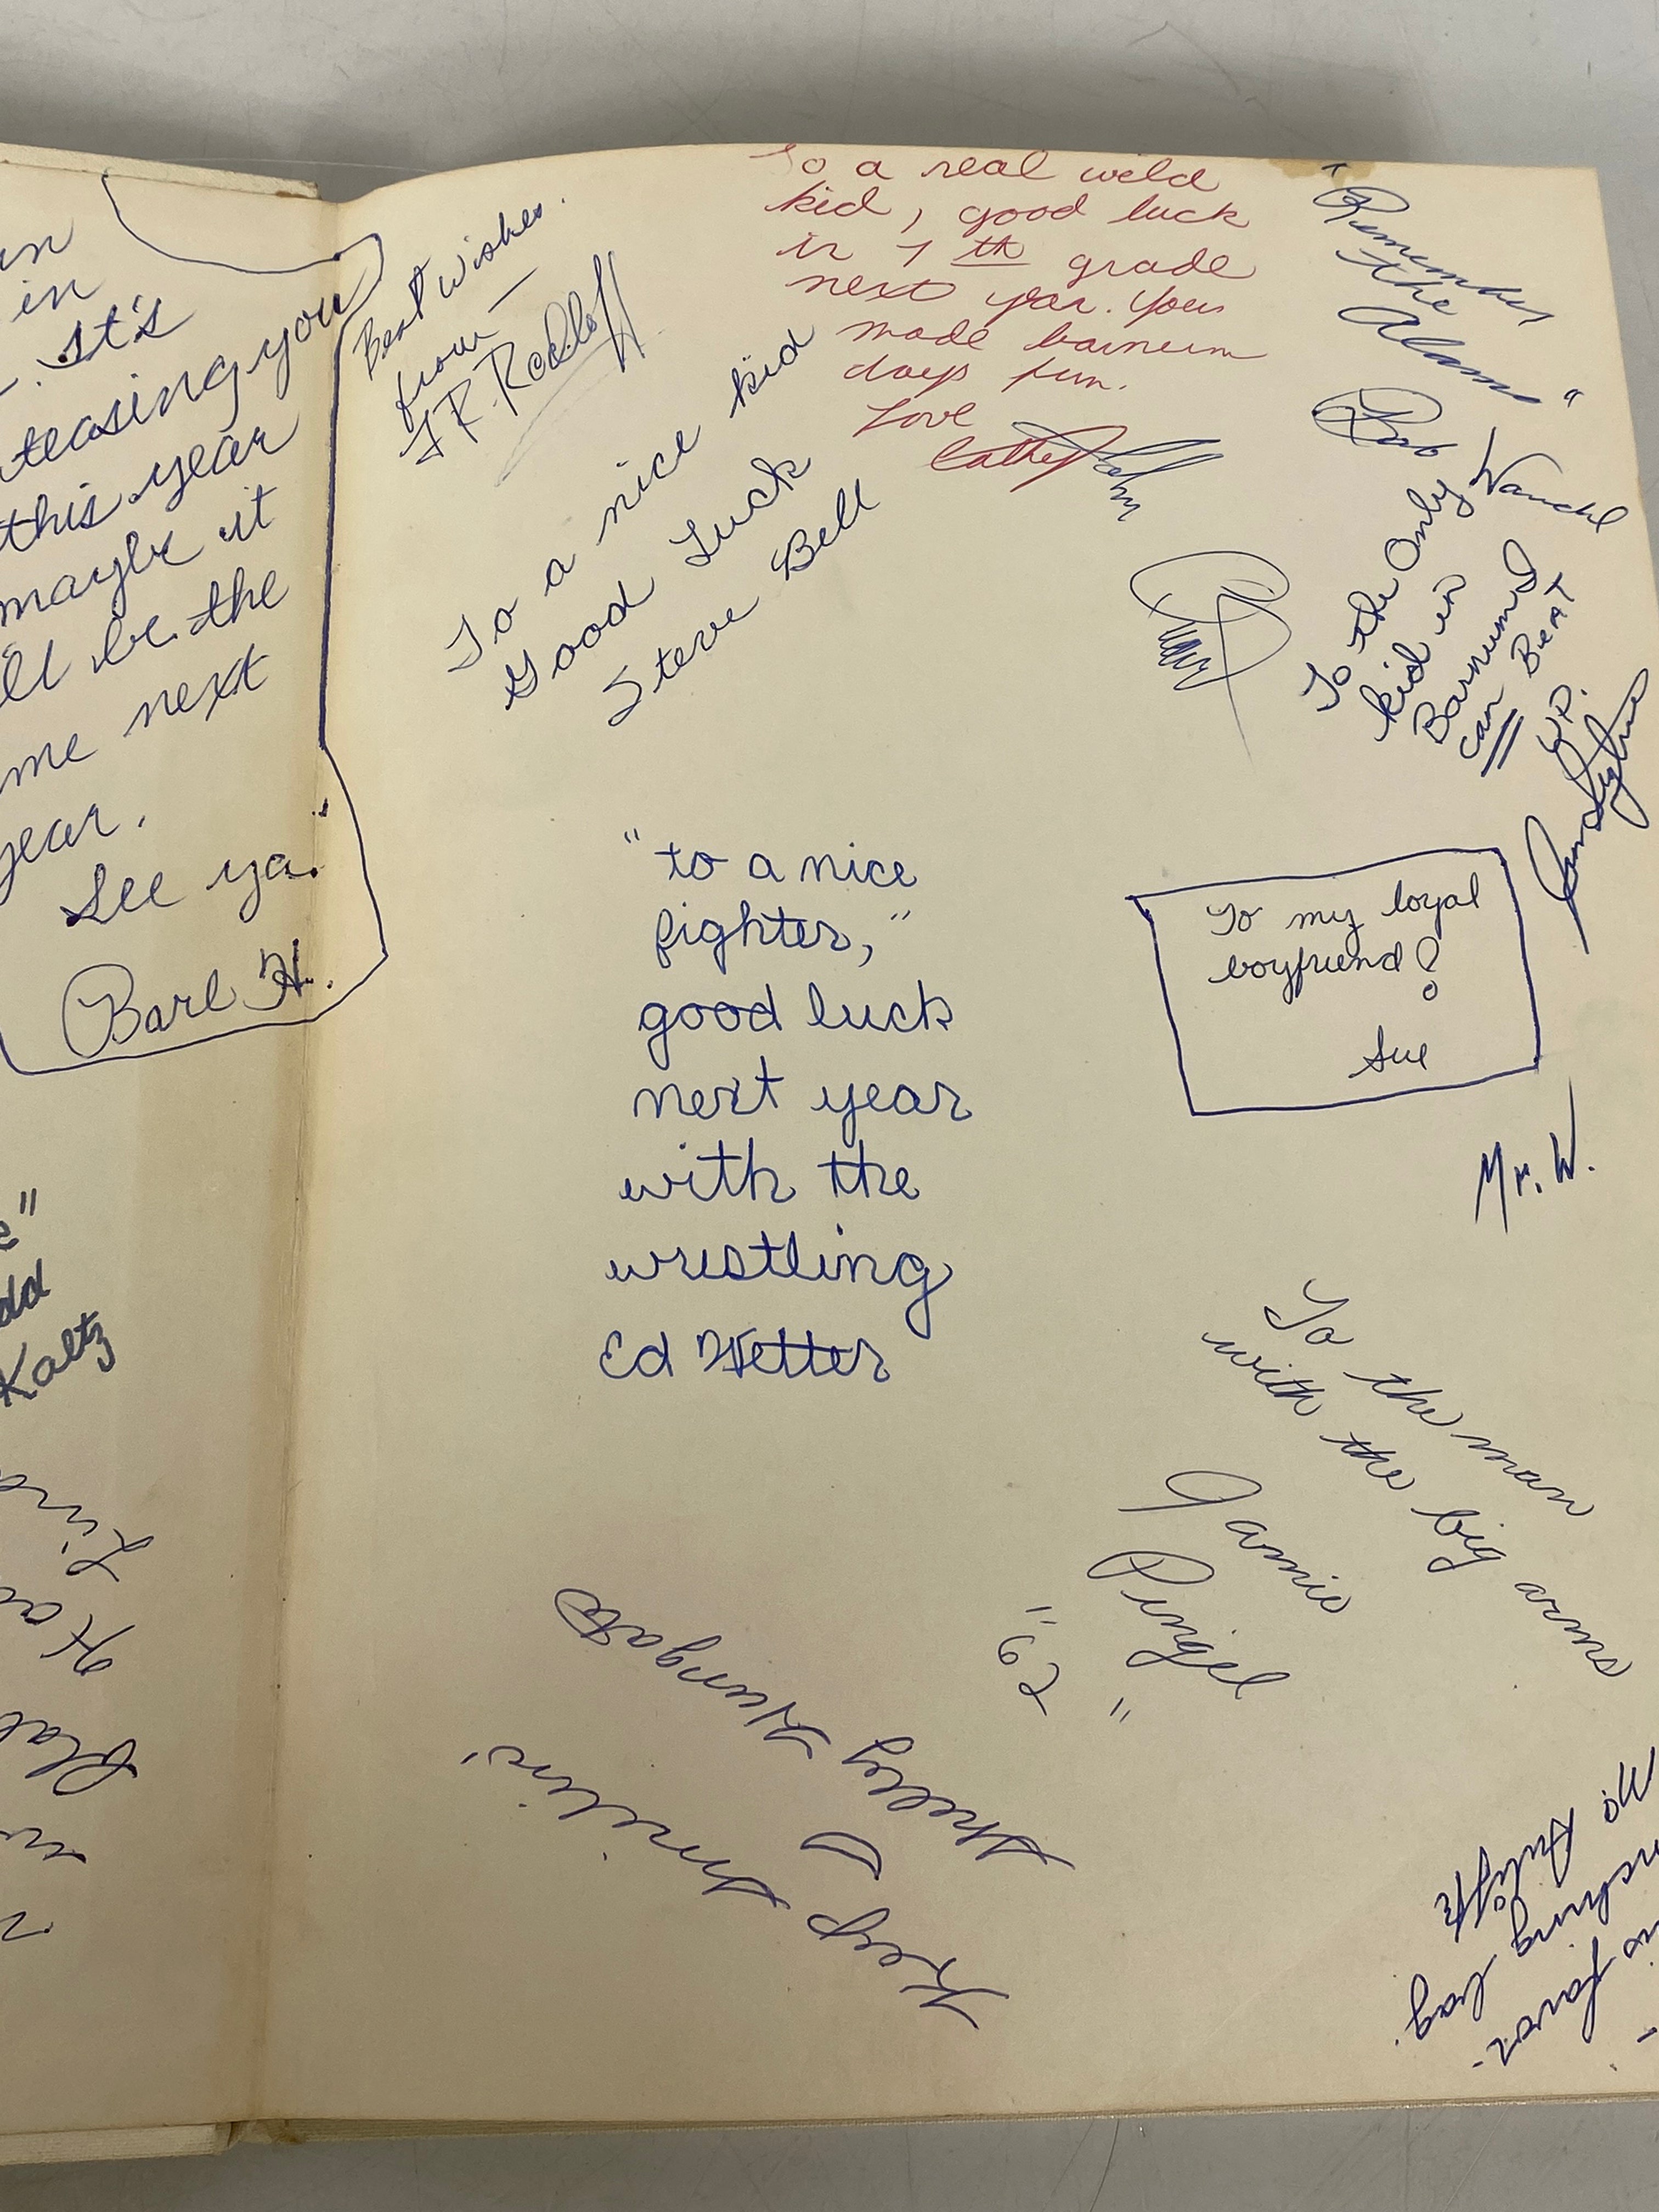 in
in
It's
teasing you
this year
maybe it
be the
me next
year.
See ya.
Barb H.
Kaltz
Best Wishes.
from —
To a real weld
kid, good luck
in 7th grade
next year. Your
made barnum
days fun.
Love
Cathy
John
"Remember
the
Alamo"
Bob
To a nice kid
Good Luck
Steve Bell
To the Only
kid in
Barnum I
can BEAT
up.
"to a nice
fighter,"
good luck
next year
with the
wrestling
Ed Hetter
To my loyal
boyfriend!
Sue
Mr. W.
To the man
with the big arms
Jamie
Pingel
"62"
Keep Smilin'
Shelley Wungate